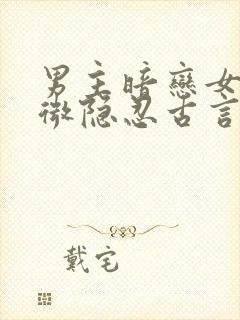 男主暗戀女
微隐忍古言
戴宅